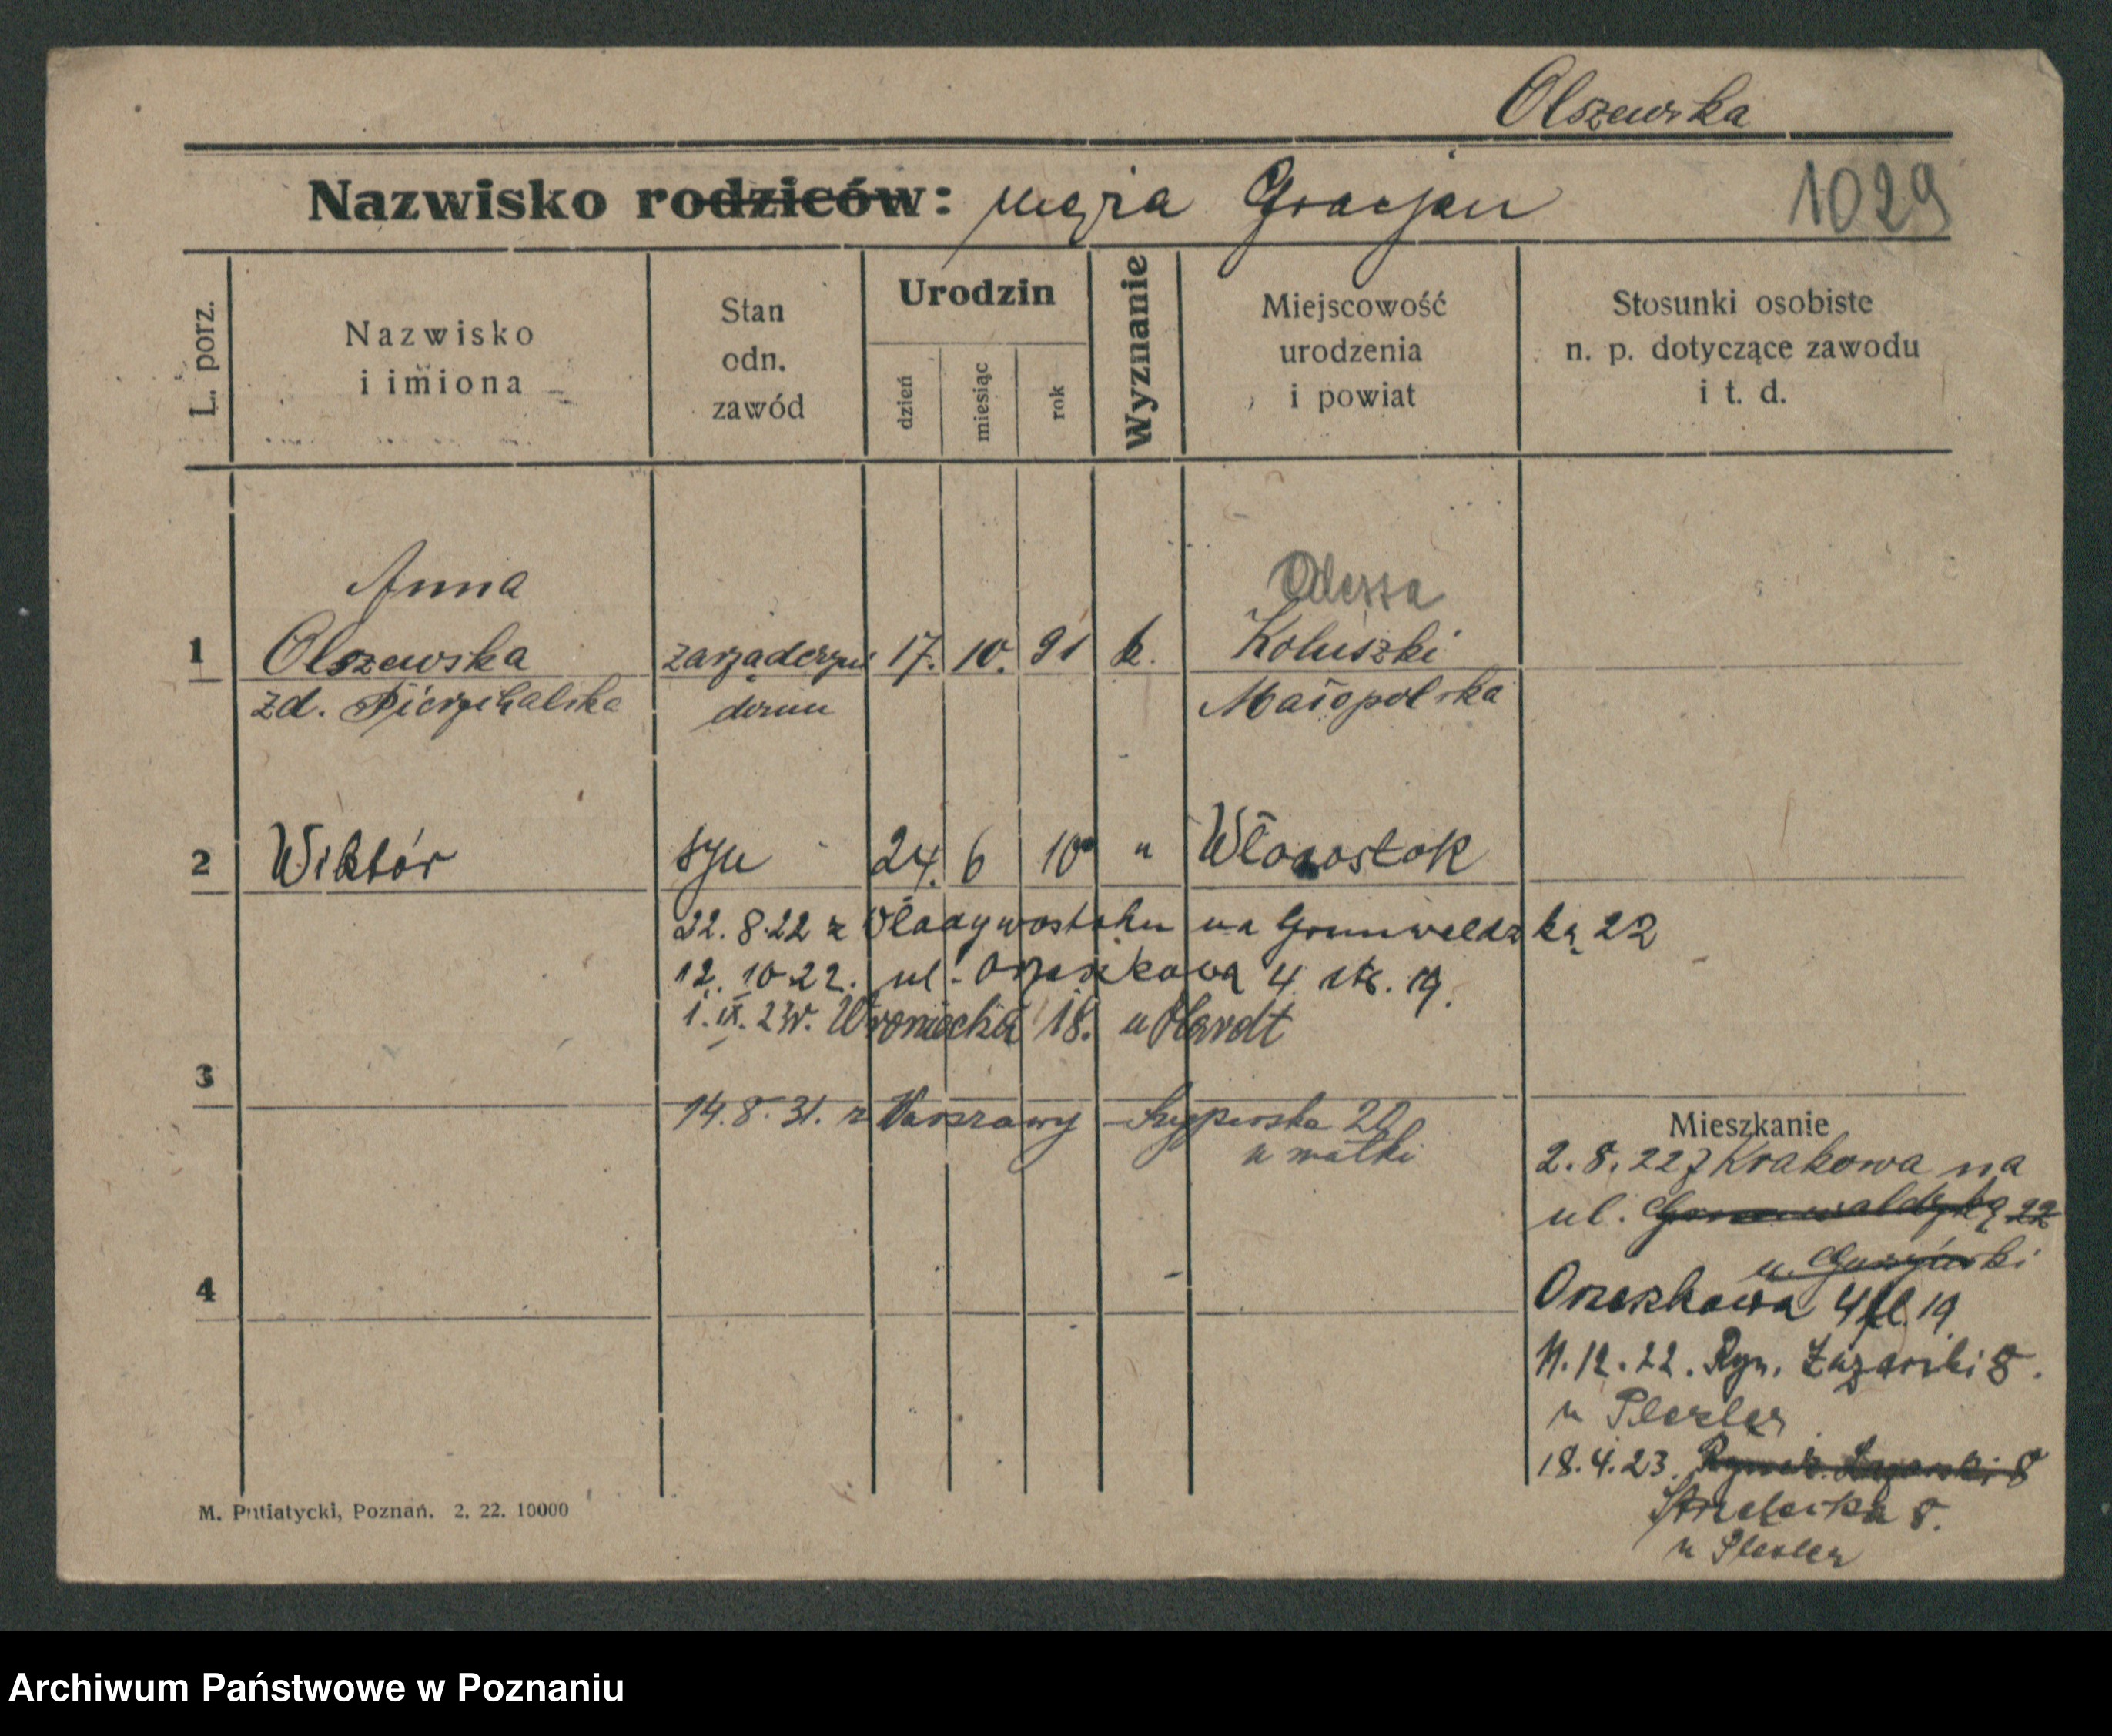 Olszewska
Nazwisko rodziców: męża Gracjan
1029
L. porz.
Nazwisko
i imiona
Stan
odn.
zawód
Urodzin
dzień
miesiąc
rok
Wyznanie
Miejscowość
urodzenia
i powiat
Stosunki osobiste
n. p. dotyczące zawodu
i t. d.
Anna
Odessa
1 Olszewska zarządczyni 17. 10. 91 k. Koluszki
zd. domu Małopolska
2 Wiktór syn 24. 6 10 "
22.8.22 z Władywostoku na Grunwaldzką 22
12.10.22. ul. Orzeszkowa 4. 19.
1.IX.23r. Wroniecka 18. u Hardt
3
14.8.31. z Warszawy 22
u matki
Mieszkanie
2.8.22 z Krakowa na
ul. Grunwaldzką 22
u
4
Orzeszkowa 4 19
11.12.22. Ryn. Łazarski 8.
u Plexler
18.4.23. Rynek Łazarski 8
Strzelecka 8.
u Plexler
M. Putiatycki, Poznań. 2. 22. 10000
Archiwum Państwowe w Poznaniu